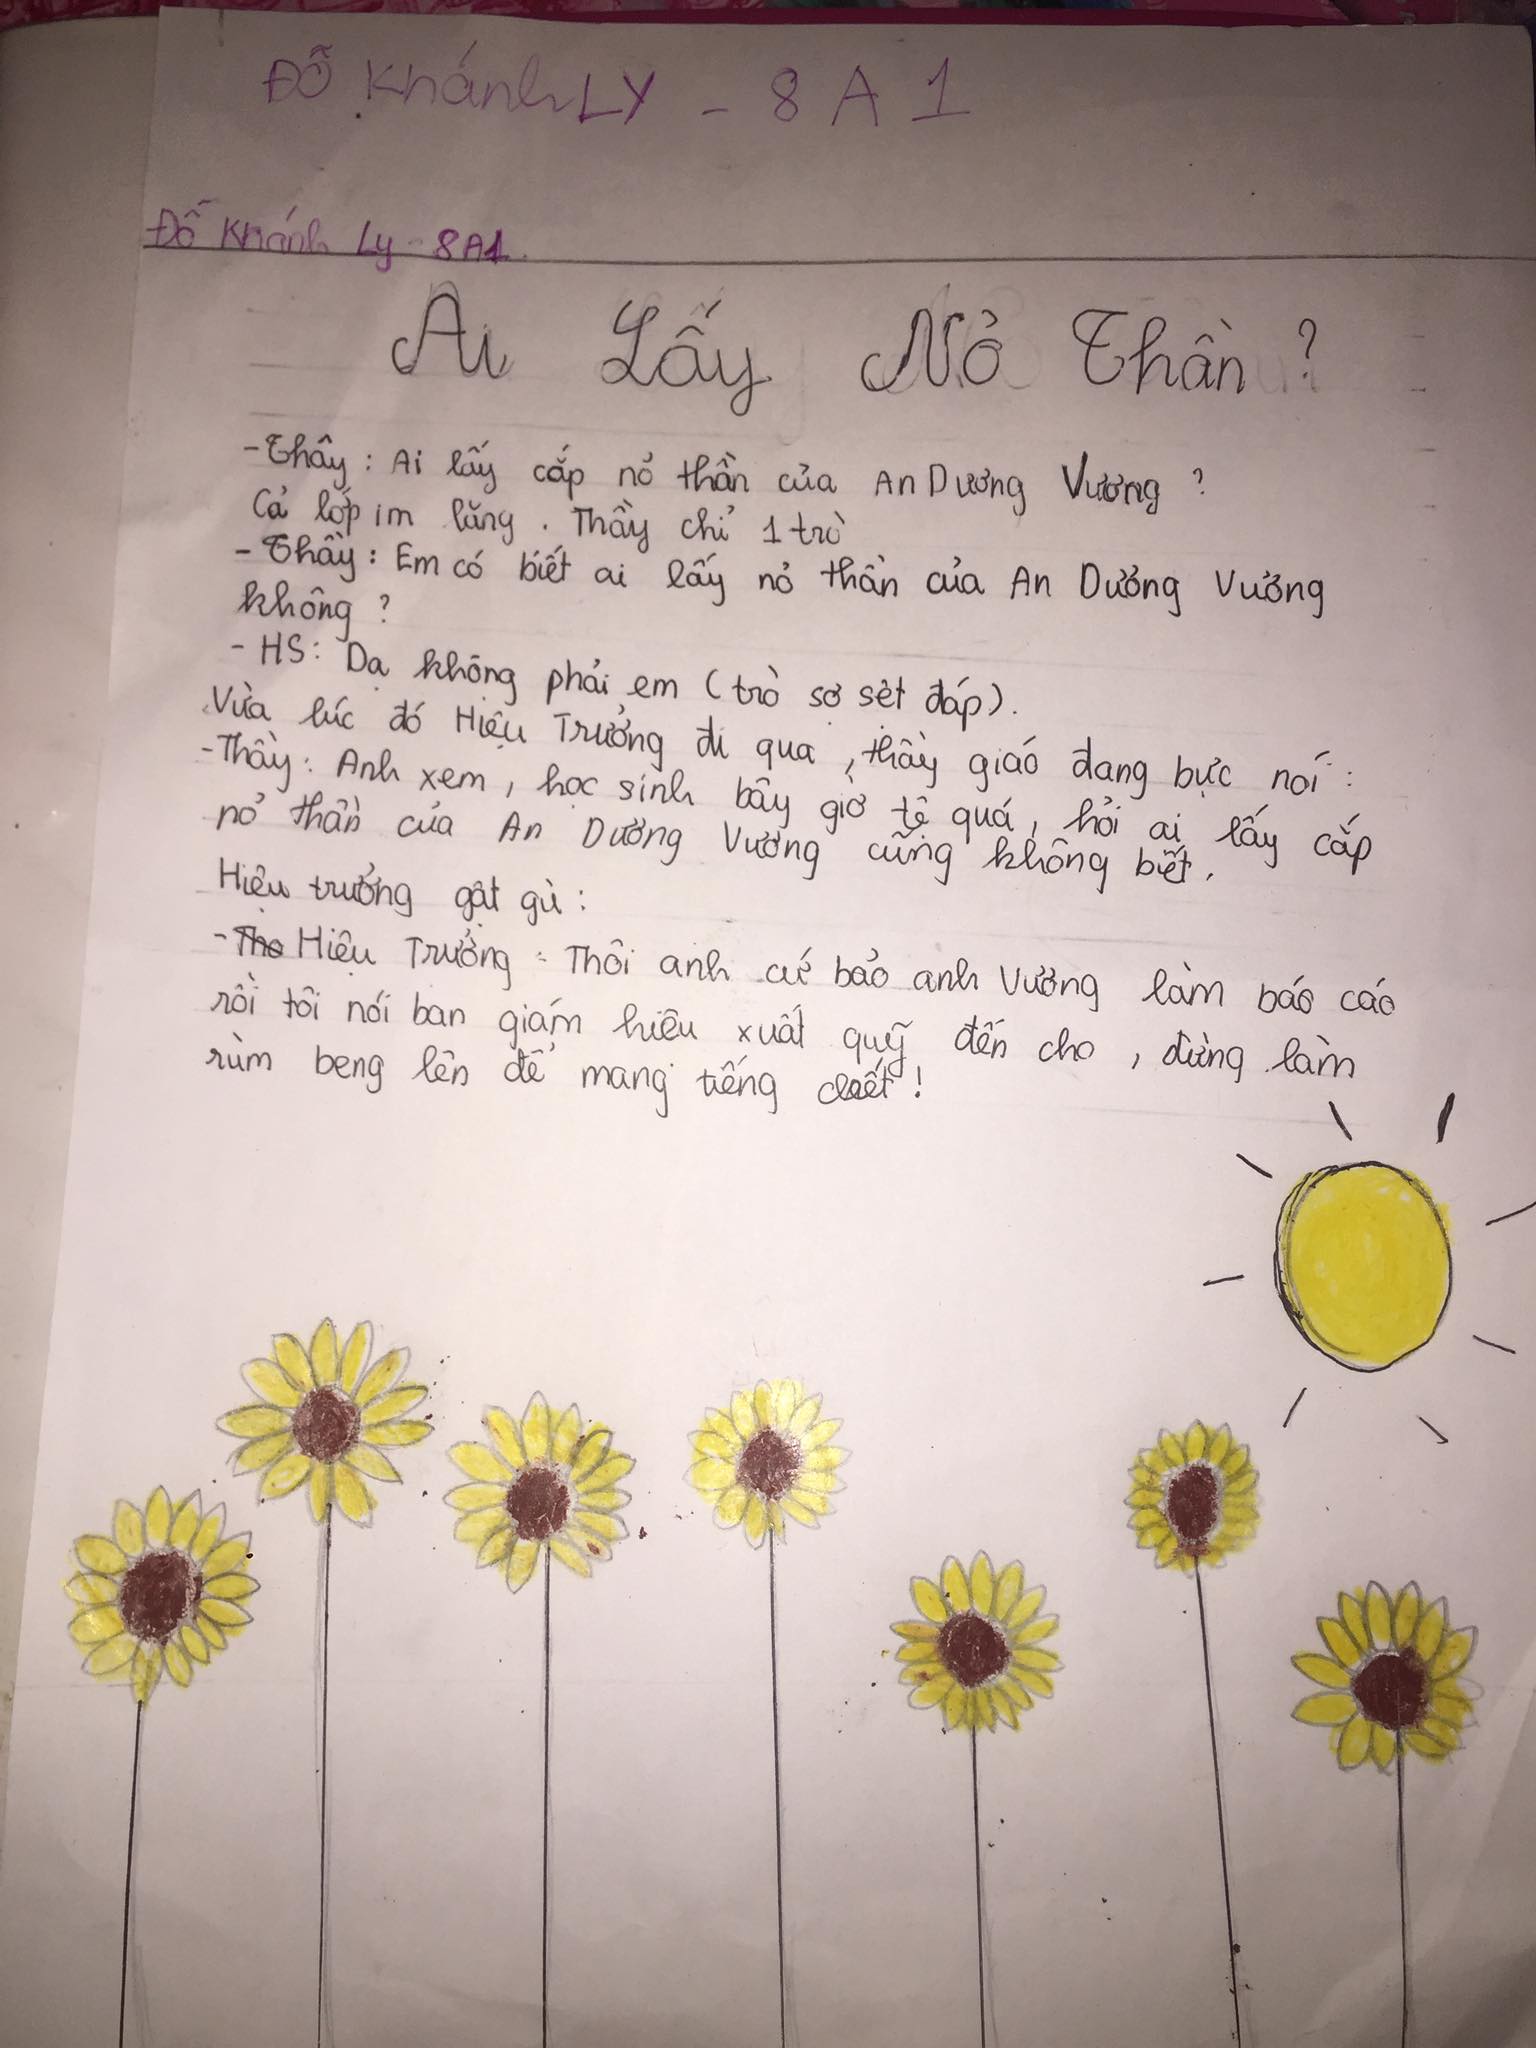 Đỗ Khánh LY - 8 A 1
Đỗ Khánh Ly - 8A1.
Ai Lấy Nỏ Thần ?
- Thầy : Ai lấy cắp nỏ thần của An Dương Vương ?
Cả lớp im lặng . Thầy chỉ 1 trò
- Thầy : Em có biết ai lấy nỏ thần của An Dương Vương
không ?
- HS : Dạ không phải em ( trò sợ sệt đáp ).
Vừa lúc đó Hiệu Trưởng đi qua , thầy giáo đang bực nói :
- Thầy : Anh xem , học sinh bây giờ tệ quá , hỏi ai lấy cắp
nỏ thần của An Dương Vương cũng không biết .
Hiệu trưởng gật gù :
- Hiệu Trưởng : Thôi anh cứ bảo anh Vương làm báo cáo
rồi tôi nói ban giám hiệu xuất quỹ đến cho , đừng làm
rùm beng lên để mang tiếng chết !